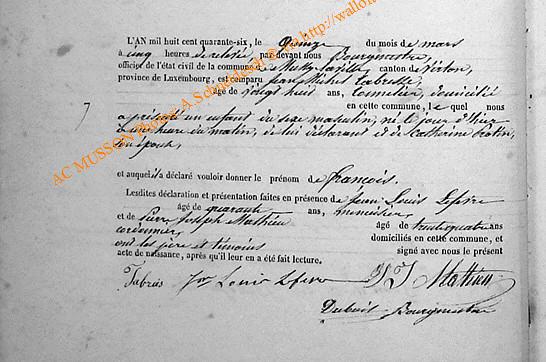 L'AN mil huit cent quarante-six, le quinze du mois de mars
à cinq heures de relevée, par devant nous Bourgmestre,
officier de l'état civil de la commune de Musty-la-Ville canton de Virton,
province de Luxembourg, est comparu Jean Michel
âgé de vingt huit ans, domicilié
en cette commune, lequel nous
a présenté un enfant du sexe masculin, né le jour d'hier
à une heure du matin, de lui déclarant et de Catherine
son épouse,
et auquel il a déclaré vouloir donner le prénom de françois.
Lesdites déclaration et présentation faites en présence de jean Louis Lefevre
âgé de quarante ans, menuisier,
et de Pierre Joseph Mathieu âgé de trente quatre ans
cordonnier, domiciliés en cette commune, et
ont les père et témoins signé avec nous le présent
acte de naissance, après qu'il leur en a été fait lecture.
Louis
P J Mathieu
Bourgmestre
AC MUSSON Photos A. Schr
http://wallo